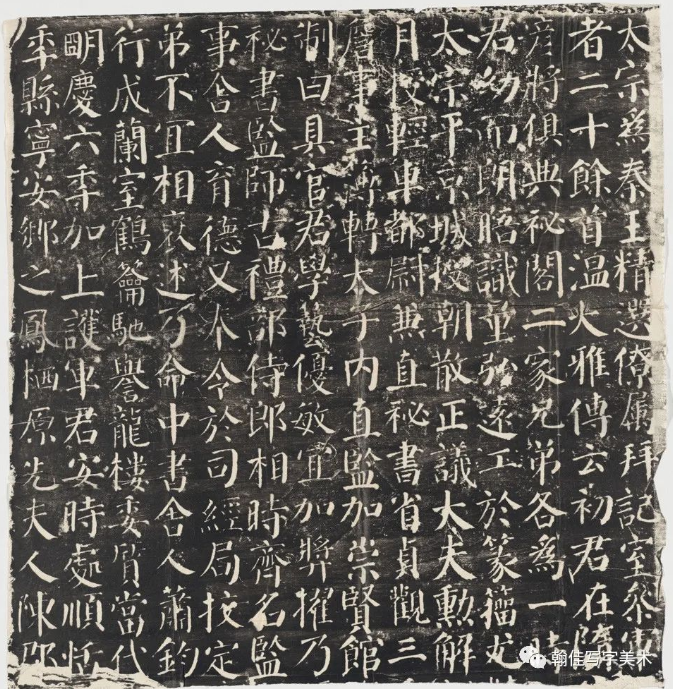 太宗為秦王精選僚屬拜記室參軍
者二十餘首溫大雅傳云初君在隋
彥將俱典祕閣二家兄弟各為一時
君幼而朗晤識量弘遠工於篆籀尤
太宗平京城授朝散正議大夫勳解
月授輕車都尉兼直祕書省貞觀三
詹事主簿轉太子內直監加崇賢館
制曰具官君學藝優敏宜加獎擢乃
祕書監師古禮部侍郎相時齊名監
事舍人育德又奉令於司經局挍定
弟不宜相褒述乃命中書舍人蕭鈞
行成蘭室鶴籥馳譽龍樓委質當代
明慶六季加上護軍君安時處順恬
季縣寧安鄉之鳳栖原先夫人陳郡
翰佳写字美术